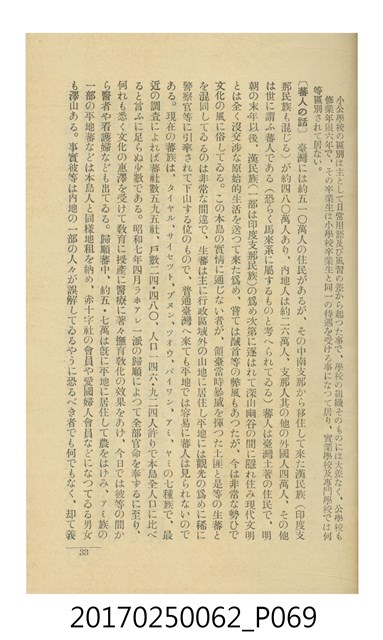 小公學校の區別は主として日常用語及び風習の差から起つた事で、學校の組織そのものには大差なく、公學校も
修業年限六年で、その卒業生は小學校卒業生と同一の待遇を受ける事になつて居り、實業學校及專門學校では何
等區別されて居ない。
〔蕃人の話〕 臺灣には約五一〇萬人の住民があるが、その中南支那から移住して來た漢民族（印度支
那民族も混じる）が約四八〇萬人あり、內地人は約二六萬人、支那人其の他の外國人四萬人、その他
は世に謂ふ蕃人である（恐らく馬來系に屬するものと考へられてゐる）蕃人は臺灣土著の住民で、明
朝の末年以後、漢民族（一部は印度支那民族）の爲め次第に逐はれて深山幽谷の間に隱れ住み現代文明
とは全く沒交涉な原始的生活を送つて來た爲め、嘗ては馘首等の弊風もあつたが、今は非常な勢ひで
文化の風に俗してゐる。この本島の實情に通じない者が、領臺當時暴威を揮つた土匪と是等の生蕃と
を混同してゐるのは非常な間違で、生蕃は主に行政區域外の山地に居住し平地には觀光の爲めに稀に
警察官等に引率されて下山する位のもので、普通臺灣へ來ても平地では容易に蕃人は見られないので
ある。現在の蕃族は、タイヤル、サイセツト、ブヌン、ツオウ、パイワン、アミ、ヤミの七種族で、最
近の調査によれば蕃社數五九五社、戶數二四・四八〇、人口一四六・九二四人許りで本島全人口に比べ
ると言ふに足らぬ少數である。昭和七年四月ラホアレ一派の歸順によつて全部官命を奉ずるに至り、
何れも悉く文化の惠澤を受けて敎育に授產に醫療に著々撫育敎化の效果をあげ、今日では彼等の間か
ら醫者や看護婦なども出てゐる。歸順蕃中、約五・七萬は旣に平地に居住して農をはげみ、アミ族の
一部の平地蕃などは本島人と同樣地租を納め、赤十字社の會員や愛國婦人會員などになつてゐる男女
も澤山ある。事實彼等は內地の一部の人々が誤解してゐるやうに恐るべき者でも何でもなく、却て義
33
20170250062_P069